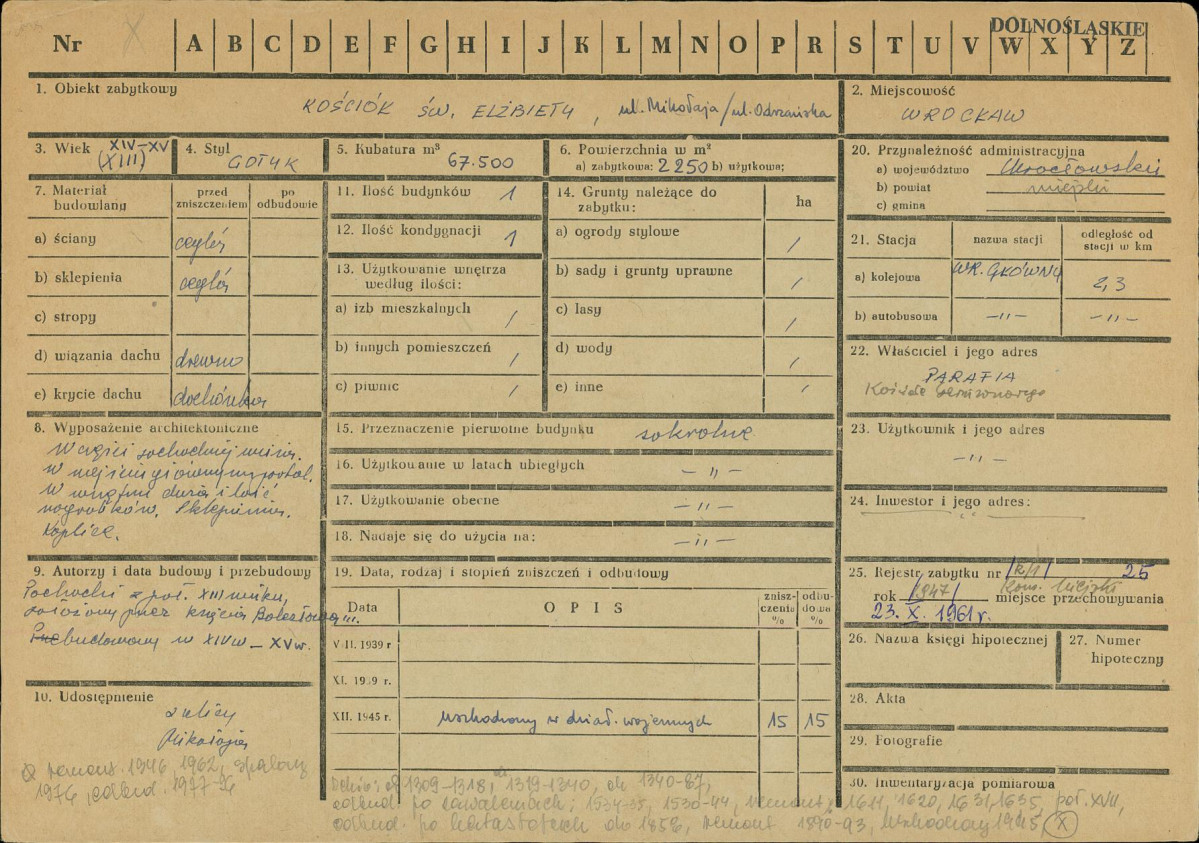 DOLNOŚLĄSKIE
Nr X A B C D E F G H I J K L M N O P R S T U V W X Y Z
1. Obiekt zabytkowy
KOŚCIÓŁ ŚW. ELŻBIETY, ul. Mikołaja/ul. Odrzańska
2. Miejscowość
WROCŁAW
3. Wiek XIV-XV
(XIII)
4. Styl
GOTYK
5. Kubatura m³
67.500
6. Powierzchnia w m²
a) zabytkowa: 2250 b) użytkowa:
7. Materiał budowlany
przed zniszczeniem
po odbudowie
a) ściany cegła
b) sklepienia cegła
c) stropy
d) wiązania dachu drewno
e) krycie dachu dachówka
8. Wyposażenie architektoniczne
W części zachodniej wieża.
W wejściu głównym portal.
W wnętrzu duża ilość
nagrobków. Sklepienia.
Kaplice.
9. Autorzy i data budowy i przebudowy
Pochodzi z poł. XIII wieku,
założony przez księcia Bolesława III.
Przebudowany w XIV w – XV w.
10. Udostępnienie
z ulicy
Mikołaja
11. Ilość budynków 1
12. Ilość kondygnacji 1
13. Użytkowanie wnętrza
według ilości:
a) izb mieszkalnych /
b) innych pomieszczeń /
c) piwnic /
14. Grunty należące do
zabytku:
ha
a) ogrody stylowe /
b) sady i grunty uprawne /
c) lasy /
d) wody /
e) inne /
15. Przeznaczenie pierwotne budynku sakralne
16. Użytkowanie w latach ubiegłych –„–
17. Użytkowanie obecne –„–
18. Nadaje się do użycia na: –„–
19. Data, rodzaj i stopień zniszczeń i odbudowy
Data
OPIS
zniszczenia %
odbudowa %
VIII. 1939 r
XI. 1939 r.
XII. 1945 r. uszkodzony w dział. wojennych 15 15
20. Przynależność administracyjna
a) województwo Wrocławskie
b) powiat miejski
c) gmina
21. Stacja
nazwa stacji
odległość od stacji w km
a) kolejowa WR. GŁÓWNY 2,3
b) autobusowa –„– –„–
22. Właściciel i jego adres
PARAFIA
Kościoła Garnizonowego
23. Użytkownik i jego adres
–„–
24. Inwestor i jego adres:
25. Rejestr zabytku nr /R/1/ 25
rok /1947/ miejsce przechowywania Kons. Miejski
23. X. 1961 r.
26. Nazwa księgi hipotecznej
27. Numer
hipoteczny
28. Akta
29. Fotografie
30. Inwentaryzacja pomiarowa
remont. 1946, 1962, spalony
1976, odbud. 1977-
1309-1318, 1319-1340, ok 1340-87,
odbud. po zawaleniach; 1534-35, 1530-44, remont; 1611, 1620, 1631, 1635, poł. XVII,
odbud. po katastrofach do 1858, remont 1890-93, uszkodzony 1945, X